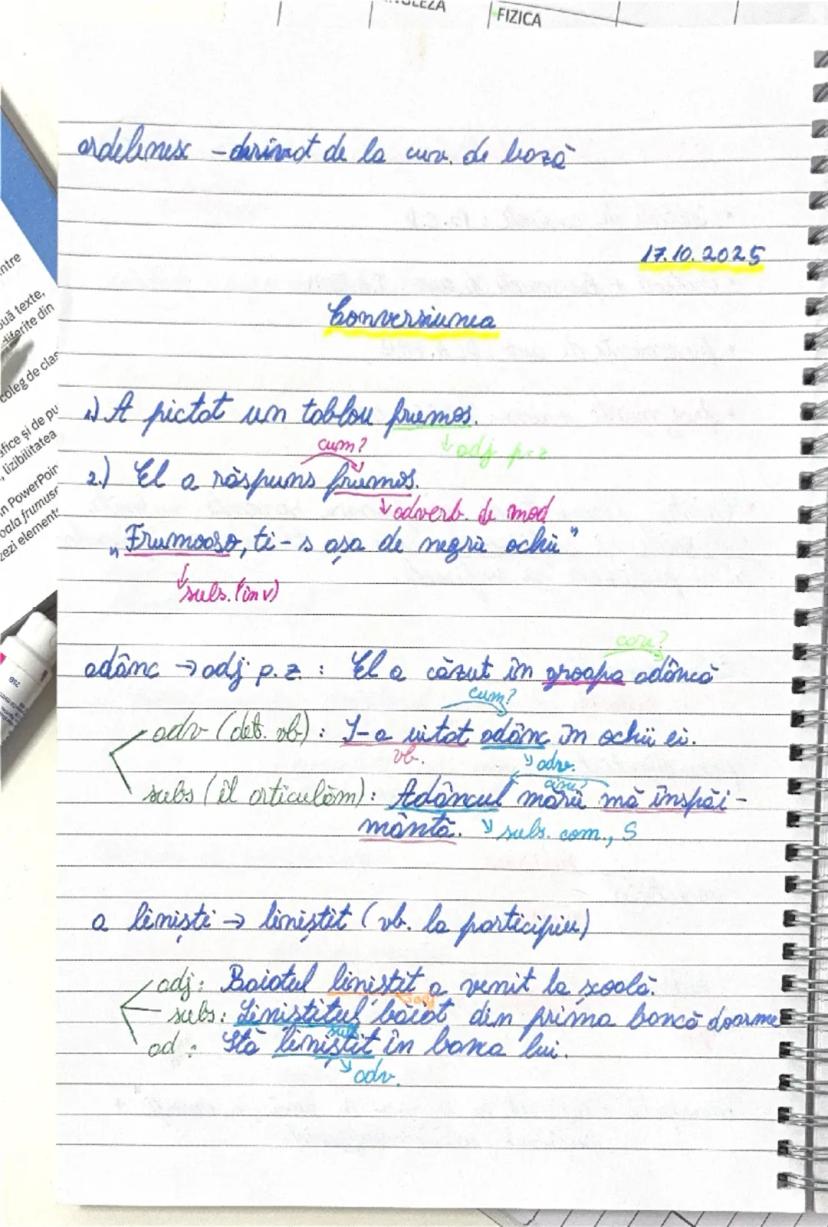 FIZICA
ardelenesc - derivat de la cuv. de bază
17.10.2025
Conversiunea
1.) A pictat un tablou frumos.
↓ adj p.z
cum?
2.) El a răspuns frumos.
↓ adverb. de mod
„Frumoaso, ți-s așa de negrii ochii"
↓ subs. (în V)
care?
adânc → adj p.z. : El a căzut în groapa adâncă
cum?
adv (det. vb) : S-a uitat adânc în ochii ei.
vb.
adv.
subs (îl articulăm) : Adâncul mării mă înspăi-
mântă.
subs. com., S
a liniști → liniștit (vb. la participiu)
adj : Baiatul liniștit a venit la școală.
adj
subs : Liniștitul băiat din prima bancă doarme
ad : Stă liniștit în banca lui.
adv.
ntre
uă texte,
diferite din
coleg de clas
afice și de pu
, lizibilitatea
n PowerPoin
oala frumus
zezi element